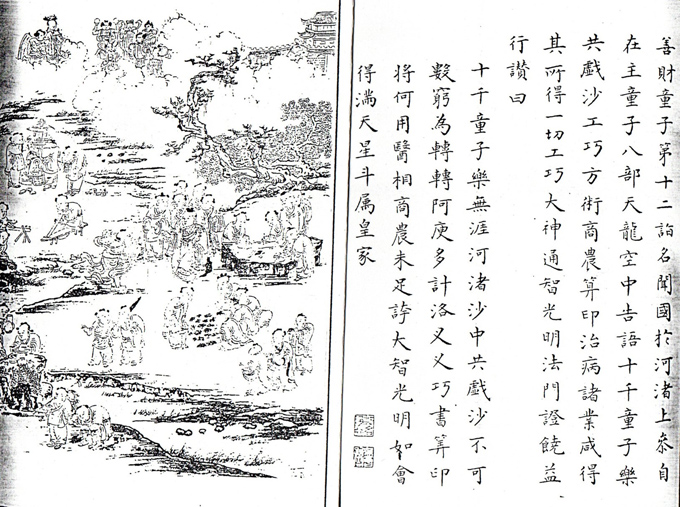 善財童子第十二詣名聞國於河渚上叅自
在主童子八部天龍空中告語十千童子樂
共戲沙工巧方術商農筭印治病諸業咸得
其所得一切工巧大神通智光明法門證饒益
行讚曰
十千童子樂無涯河渚沙中共戲沙不可
數窮為轉轉阿庾多計洛叉叉巧書筭印
將何用醫相商農未足誇大智光明如會
得滿天星斗屬皇家